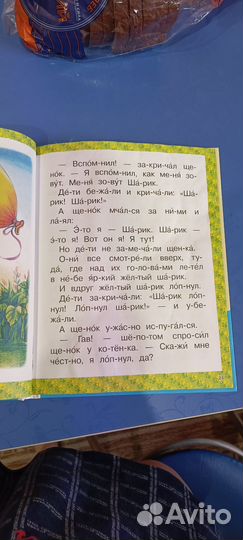 — Вспо́м-нил! — за-кри-ча́л ще-
но́к. — Я вспо́м-нил, как ме-ня́ зо-
ву́т. Ме-ня́ зо-ву́т Ша́-рик.
Де́-ти бе-жа́-ли и кри-ча́-ли: «Ша́-
рик! Ша́-рик!»
А ще-но́к мча́л-ся за ни́-ми и
ла́-ял:
— Э́-то я — Ша́-рик. Ша́-рик —
э́-то я! Вот он я! Я тут!
Но де́-ти не за-ме-ча́-ли щен-ка́.
О-ни́ все смот-ре́-ли вверх, ту-
да́, где над их го-ло-ва́-ми ле-те́л
в не́-бе я́р-кий жёл-тый ша́-рик.
И вдруг жёл-тый ша́-рик ло́п-нул.
Де́-ти за-кри-ча́-ли: «Ша́-рик ло́п-
нул! Ло́п-нул ша́-рик!» — и у-бе-
жа́-ли.
А ще-но́к у-жа́с-но ис-пу-га́л-ся.
— Гав! — шё-по-том спро-си́л
ще-но́к у ко-тён-ка. — Ска-жи́ мне
че́ст-но, я ло́п-нул, да?
Avito